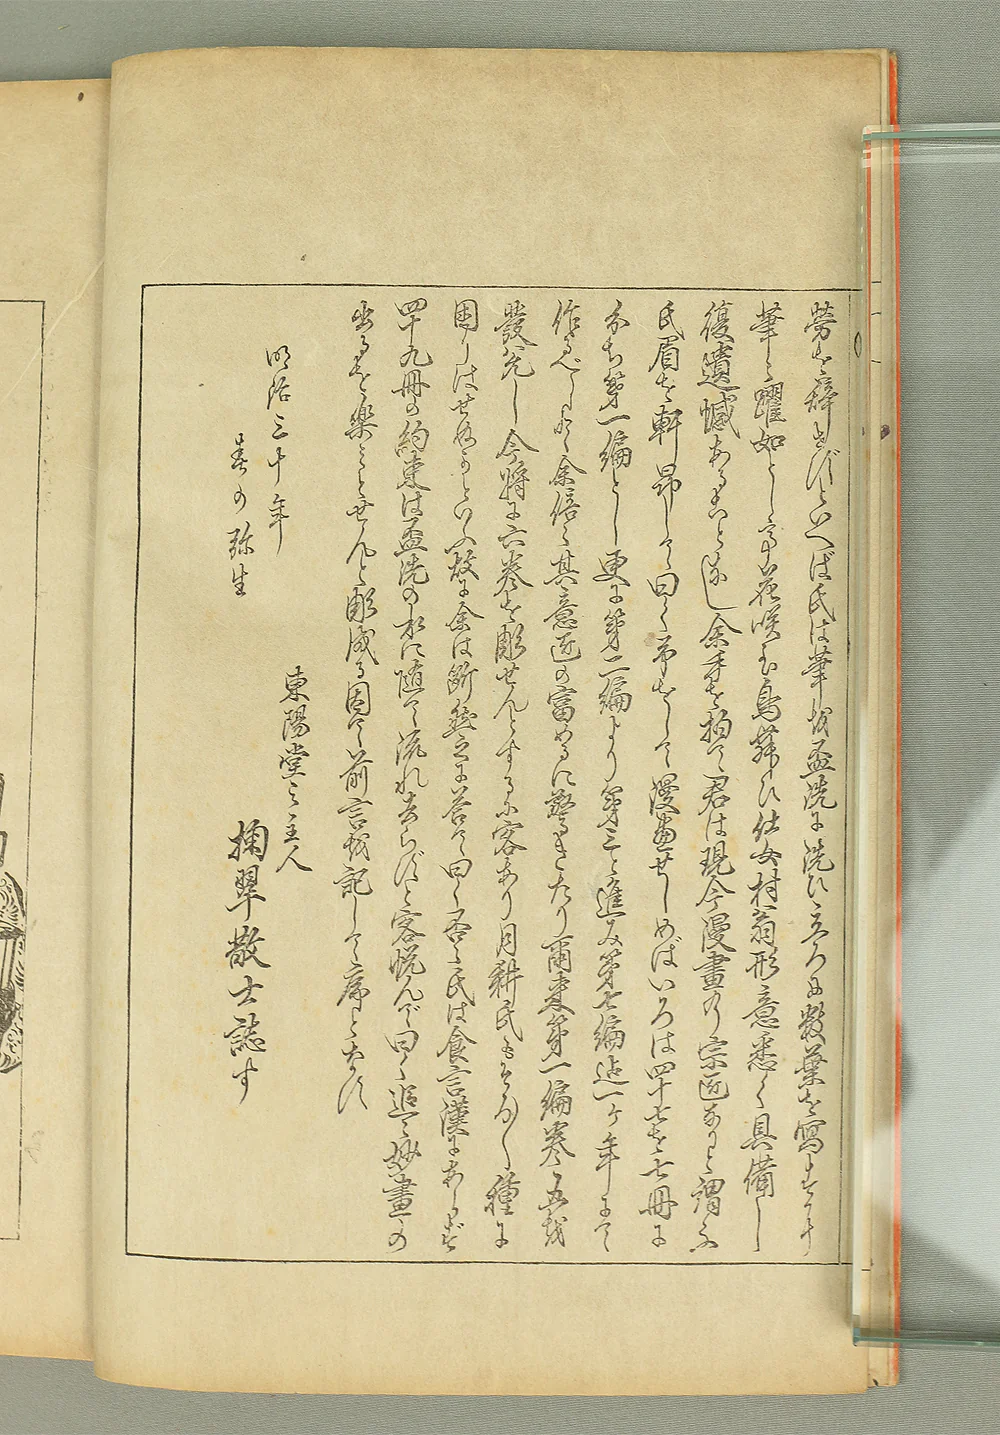 労を辞せずといへば氏は筆を盃洗に洗ひ立ろに数葉を寫すに
筆々躍如として花咲き鳥舞ひ仕女村翁形意悉く具備し
復遺憾あること〻なし余手を拍て君は現今漫畫の宗匠なりと謂ふ
氏眉を軒昂して曰く弟をして漫画せしめばいろは四十七を七冊に
分ち第一編とし更に第二編より第三と進み第七編迄一ケ年にて
作るべしと余倍々其意匠の富めるに驚きたり爾来第一編巻五を
發兌し今將に六巻を彫せんとするに客あり月耕氏もそろ〳〵種に
困りはせぬかといふ故に余は断然之に荅て曰く否々氏は食言漢にあらず
四十九冊の約束は盃洗の水に随て流れ去らずと客悦んで曰く追々妙畫の
出るを楽みとせんと彫成る因て前言を記して序となす
明治三十年
春の弥生
東陽堂之主人
掬翠散士誌す